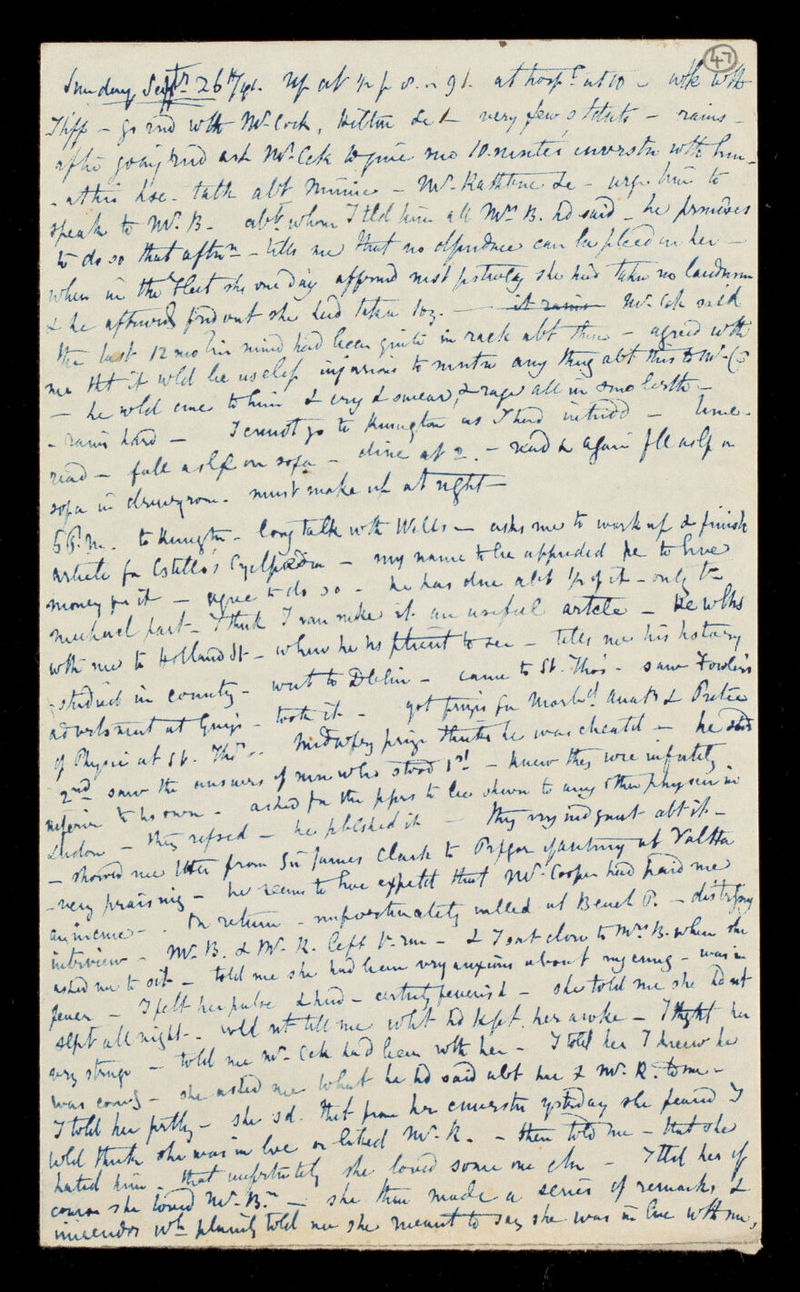 47
Sunday Septr 26th/41. Up at ½ p 8. ~ 91. at hospl at 10 – wlk wth
Iliff – go rnd wth Mr Cock, &c &c – very few stdnts – rains –
after going rnd ask Mr. Cck to give me 10 minutes cnverstn wth him –
– at his hse. talk abt Minnie – Mr. &c – urge him to
speak to Mr. B. abt whom I tld him all Mrs B. hd said – he prmises
to do so that aftrn – tells me that no dpendnce can be plced in her –
when in the Fleet she one day affrmed mst pstvely she had taken no laudnum
& he aftrwrds fnd out she had taken 1oz. – it rains Mr. Cck said
the last 12 mo his mind had been quite in rack abt them – agreed wth
me tht it wld be useless injurious to mntn any thng abt this to Mr. C
– he wld cme to him & cry & swear, & rage all in smo
– rains hard – I cnnot go to Knsngton as I had intndd – hme –
read – fall aslp on sofa – dine at 2. – read & again fll aslp on
sofa in drwngroom – must make up at night –
5 P.m. to Knsngtn – long talk wth Wills – asks me to work up & finish
article for Cstello's Cyclpædia – my name to be appnded he to hve
money for it – agree to do so – he has dne abt ½ of it – only the
mechncl part – I think I can mke it an useful artcle – He wlks
wth me to Holland St – whre he hs ptient to see – tells me his hstory
– studied in country – went to Dblin – came to St. Thos – saw Fowler's
advrtsmnt at Guy's – took it – got prizes for Morbd Anaty & Prctce
of Physic at St. Thos – Midwfry prize thnks he was cheatd – he
2nd saw the answers of man who stood 1st – knew they wre infntely
inferior to hs own – asked for the pprs to be shewn to any othr physcn in
Lndon – they refsed – he pblshed it – they vry indgnnt abt it –
– showed me lttr from Sir James Clark to Prfssr at
– very praisng – he seems to hve expctd that Mr. Cooper had paid me
an . On return – unfortnately called at Bench P. – dstrssng
interview – Mr. B. & Mr. R. left the rm – & I sat close to Mrs B. when she
asked me to sit – told me she had been very anxious about my cmng – was in
fever – I felt her pulse & hnd – certnly feverish – she told me she hd nt
slept all night – wld nt tell me wht hd kept her awoke – I thght her
very strnge – told me Mr. Cck had been wth her – I told her I knew he
was comng – she asked me what he hd said abt her & Mr. R. to me –
I told her prtly – she sd. tht from her cnverstn ystrday she feared I
wld think she was in lve or liked Mr. R. – then told me – tht she
hated him – that unfrtntely she loved some one else – I tld her of
course she loved Mr. Bn – she then made a series of remarks &
inuendos wh plainly told me she meant to say she was in lve wth me,